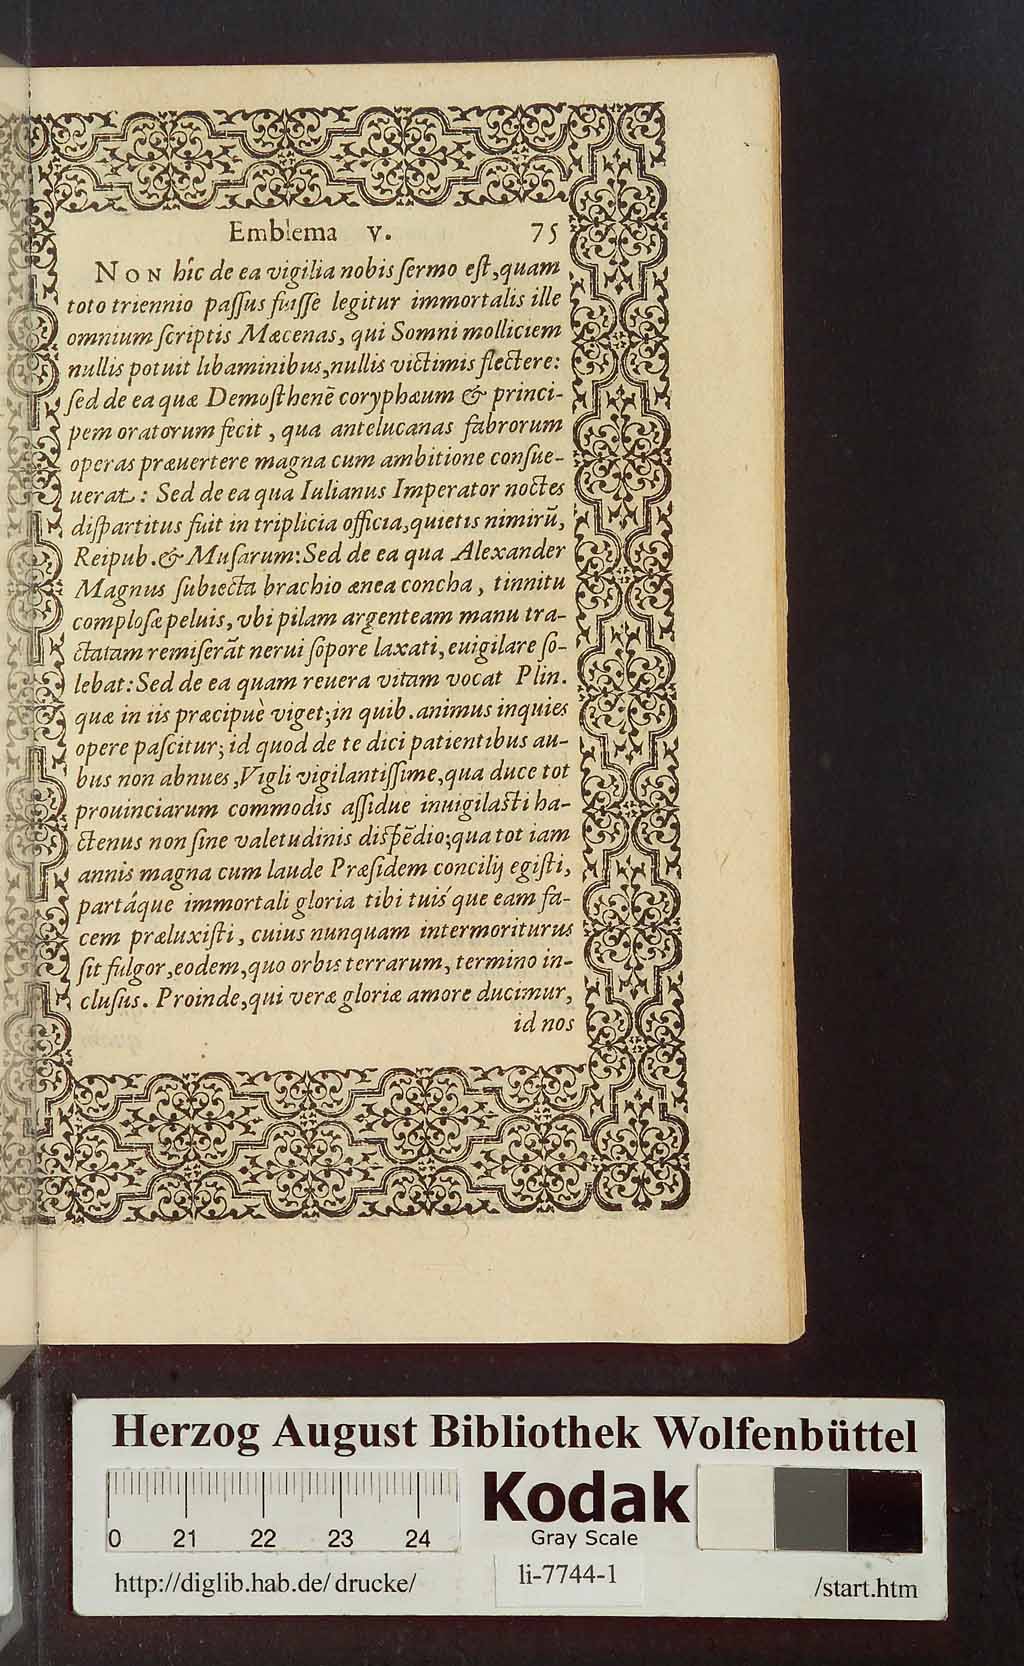 Emblema V. 75
NON hîc de ea vigilia nobis ſermo eſt, quam
toto triennio paſſus fuiſſe legitur immortalis ille
omnium ſcriptis Mæcenas, qui Somni molliciem
nullis potuit libaminibus, nullis victimis flectere:
ſed de ea quæ Demoſthenē coryphæum & princi-
pem oratorum fecit, qua antelucanas fabrorum
operas præuertere magna cum ambitione conſue-
uerat: Sed de ea qua Iulianus Imperator noctes
diſpartitus fuit in triplicia officia, quietis nimirū,
Reipub. & Muſarum: Sed de ea qua Alexander
Magnus ſubiecta brachio ænea concha, tinnitu
comploſæ peluis, vbi pilam argenteam manu tra-
ctatam remiſerāt nerui ſopore laxati, euigilare ſo-
lebat: Sed de ea quam reuera vitam vocat Plin.
quæ in iis præcipuè viget; in quib. animus inquies
opere paſcitur; id quod de te dici patientibus au-
bus non abnues, Vigli vigilantiſſime, qua duce tot
prouinciarum commodis aſſidue inuigilaſti ha-
ctenus non ſine valetudinis diſpēdio; qua tot iam
annis magna cum laude Præſidem concilij egiſti,
partáque immortali gloria tibi tuiś que eam fa-
cem præluxiſti, cuius nunquam intermoriturus
ſit fulgor, eodem, quo orbis terrarum, termino in-
cluſus. Proinde, qui veræ gloriæ amore ducimur,
id nos
Herzog August Bibliothek Wolfenbüttel
0 21 22 23 24
Kodak
Gray Scale
http://diglib.hab.de/drucke/
li-7744-1
/start.htm